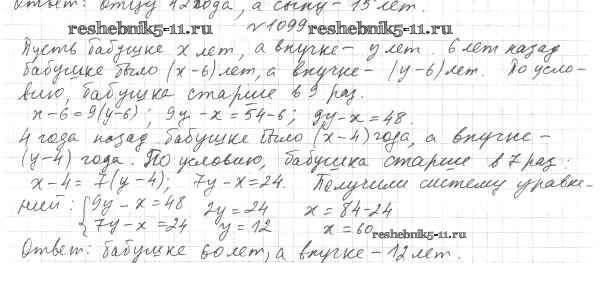 Ответ: отцу 42 года, а сыну - 15 лет.
reshebnik5-11.ru
№1099
Пусть бабушке x лет, а внучке - y лет. 6 лет назад
бабушке было (x-6) лет, а внучке - (y-6) лет. По усло-
вию, бабушка старше в 9 раз.
x-6=9(y-6); 9y-x=54-6; 9y-x=48.
4 года назад бабушке было (x-4) года, а внучке -
(y-4) года. По условию, бабушка старше в 7 раз.
x-4=7(y-4); 7y-x=24. Получили систему уравне-
ний: { 9y-x=48 2y=24 x=84-24
7y-x=24 y=12 x=60
reshebnik5-11.ru
Ответ: бабушке 60 лет, а внучке - 12 лет.